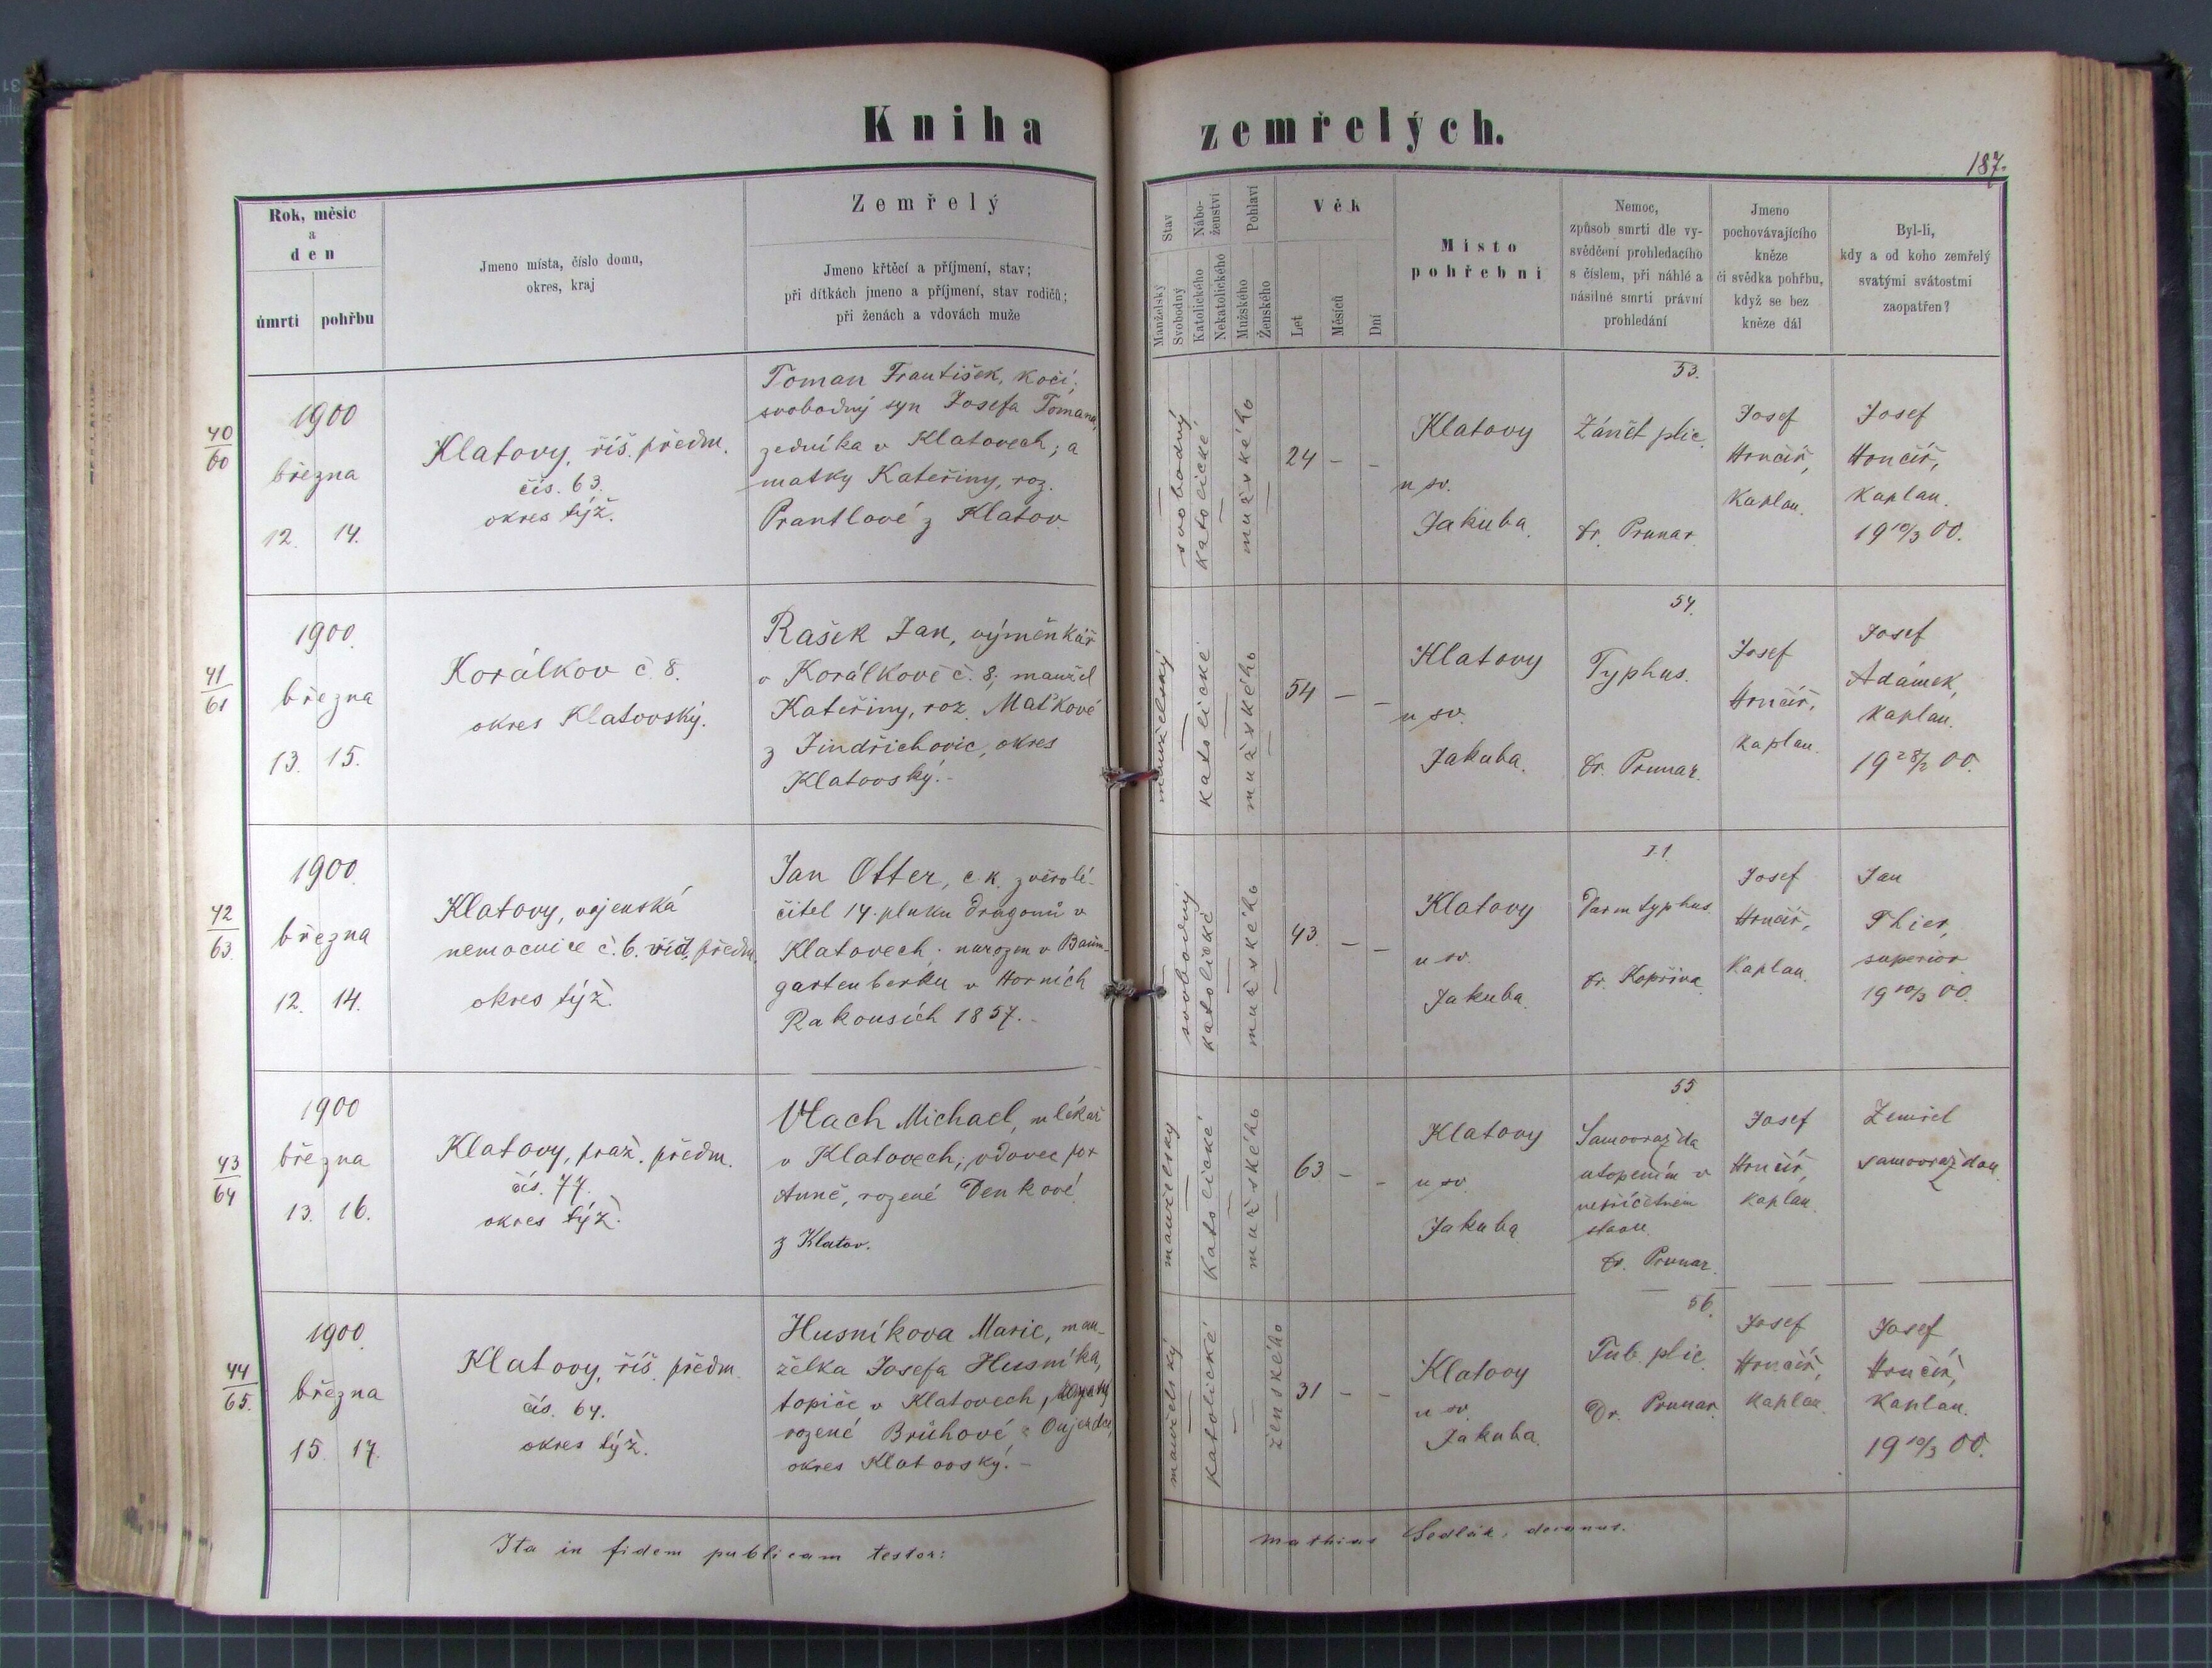 Kniha zemřelých.
187.
Rok, měsíc
a
den
úmrtí
pohřbu
Jmeno místa, číslo domu,
okres, kraj
Zemřelý
Jmeno křtěcí a příjmení, stav;
při dítkách jmeno a příjmení, stav rodičů;
při ženách a vdovách muže
Stav
Manželský
Svobodný
Nábo-
ženství
Katolického
Nekatolického
Pohlaví
Mužského
Ženského
Věk
Let
Měsíců
Dní
Místo
pohřební
Nemoc,
způsob smrti dle vy-
svědčení prohledacího
s číslem, při náhlé a
násilné smrti právní
prohledání
Jmeno
pochovávajícího
kněze
či svědka pohřbu,
když se bez
kněze dál
Byl-li,
kdy a od koho zemřelý
svatými svátostmi
zaopatřen?
40
60
1900
března
12. 14.
Klatovy, říš. předm.
čís. 63.
okres týž.
Toman František, kočí;
svobodný syn Josefa Tomana,
zedníka v Klatovech; a
matky Kateřiny, roz.
Prantlové z Klatov
svobodný
katolické
mužského
24 – –
Klatovy
u sv.
Jakuba.
53.
Zánět plic.
Dr. Prunar
Josef
Hrnčíř,
Kaplan.
Josef
Hrnčíř,
Kaplan.
19 10/3 00.
41
61
1900.
března
13. 15.
Korálkov č. 8.
okres Klatovský.
Rašek Jan, výměnkář
v Korálkově č. 8; manžel
Kateřiny, roz. Maťkové
z Jindřichovic, okres
Klatovský.-
manželský
katolické
mužského
54 – –
Klatovy
u sv.
Jakuba.
54.
Typhus.
Dr. Prunar.
Josef
Hrnčíř,
kaplan.
Josef
Adámek,
kaplan.
19 28/2 00.
42
63.
1900.
března
12. 14.
Klatovy, vojenská
nemocnice č. 6. předm.
okres týž.
Jan Otter, c. k. zvěrolé-
čitel 14. pluku dragonů v
Klatovech; narozen v Baum-
gartenberku v Horních
Rakousích 1857.-
svobodný
katolické
mužského
43. – –
Klatovy
u sv.
Jakuba.
Darmtyphus.
Dr. Kopřiva
Josef
Hrnčíř,
Kaplan.
Jan
superior
19 10/3 00.
43
64
1900
března
13. 16.
Klatovy, praž. předm.
čís. 77.
okres týž.
Vlach Michael, mlékař
v Klatovech; vdovec po
Anně, rozené Denkové
z Klatov.
manželský
Katolické
mužského
63 – –
Klatovy
u sv.
Jakuba
55
Samovražda
utopením v
nepříčetném
stavu.
Dr. Prunar.
Josef
Hrnčíř,
kaplan.
Zemřel
samovraždou.
44
65.
1900.
března
15. 17.
Klatovy, říš. předm.
čís. 64.
okres týž.
Husníkova Marie, man-
želka Josefa Husníka,
topiče v Klatovech,
rozené Brůhové z Oujezdce,
okres Klatovský.-
manželský
katolické
ženského
31 – –
Klatovy
u sv.
Jakuba.
56.
Tub. plic.
Dr. Prunar.
Josef
Hrnčíř,
kaplan.
Josef
Hrnčíř,
Kaplan.
19 10/3 00.
Ita in fidem publicam testor: Mathias Sedlák, decanus.